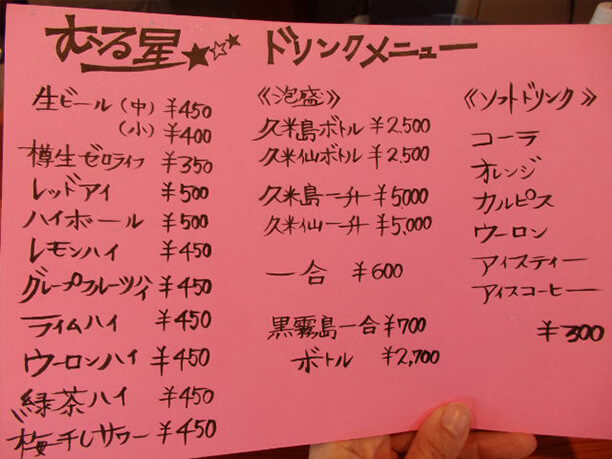 むる星 ドリンクメニュー
生ビール(中) ¥450
(小) ¥400
樽生ゼロライフ ¥350
レッドアイ ¥500
ハイボール ¥500
レモンハイ ¥450
グレープフルーツハイ ¥450
ライムハイ ¥450
ウーロンハイ ¥450
緑茶ハイ ¥450
梅干しサワー ¥450
《泡盛》
久米島ボトル ¥2,500
久米仙ボトル ¥2,500
久米島一升 ¥5000
久米仙一升 ¥5,000
一合 ¥600
黒霧島一合 ¥700
ボトル ¥2,700
《ソフトドリンク》
コーラ
オレンジ
カルピス
ウーロン
アイスティー
アイスコーヒー
¥300